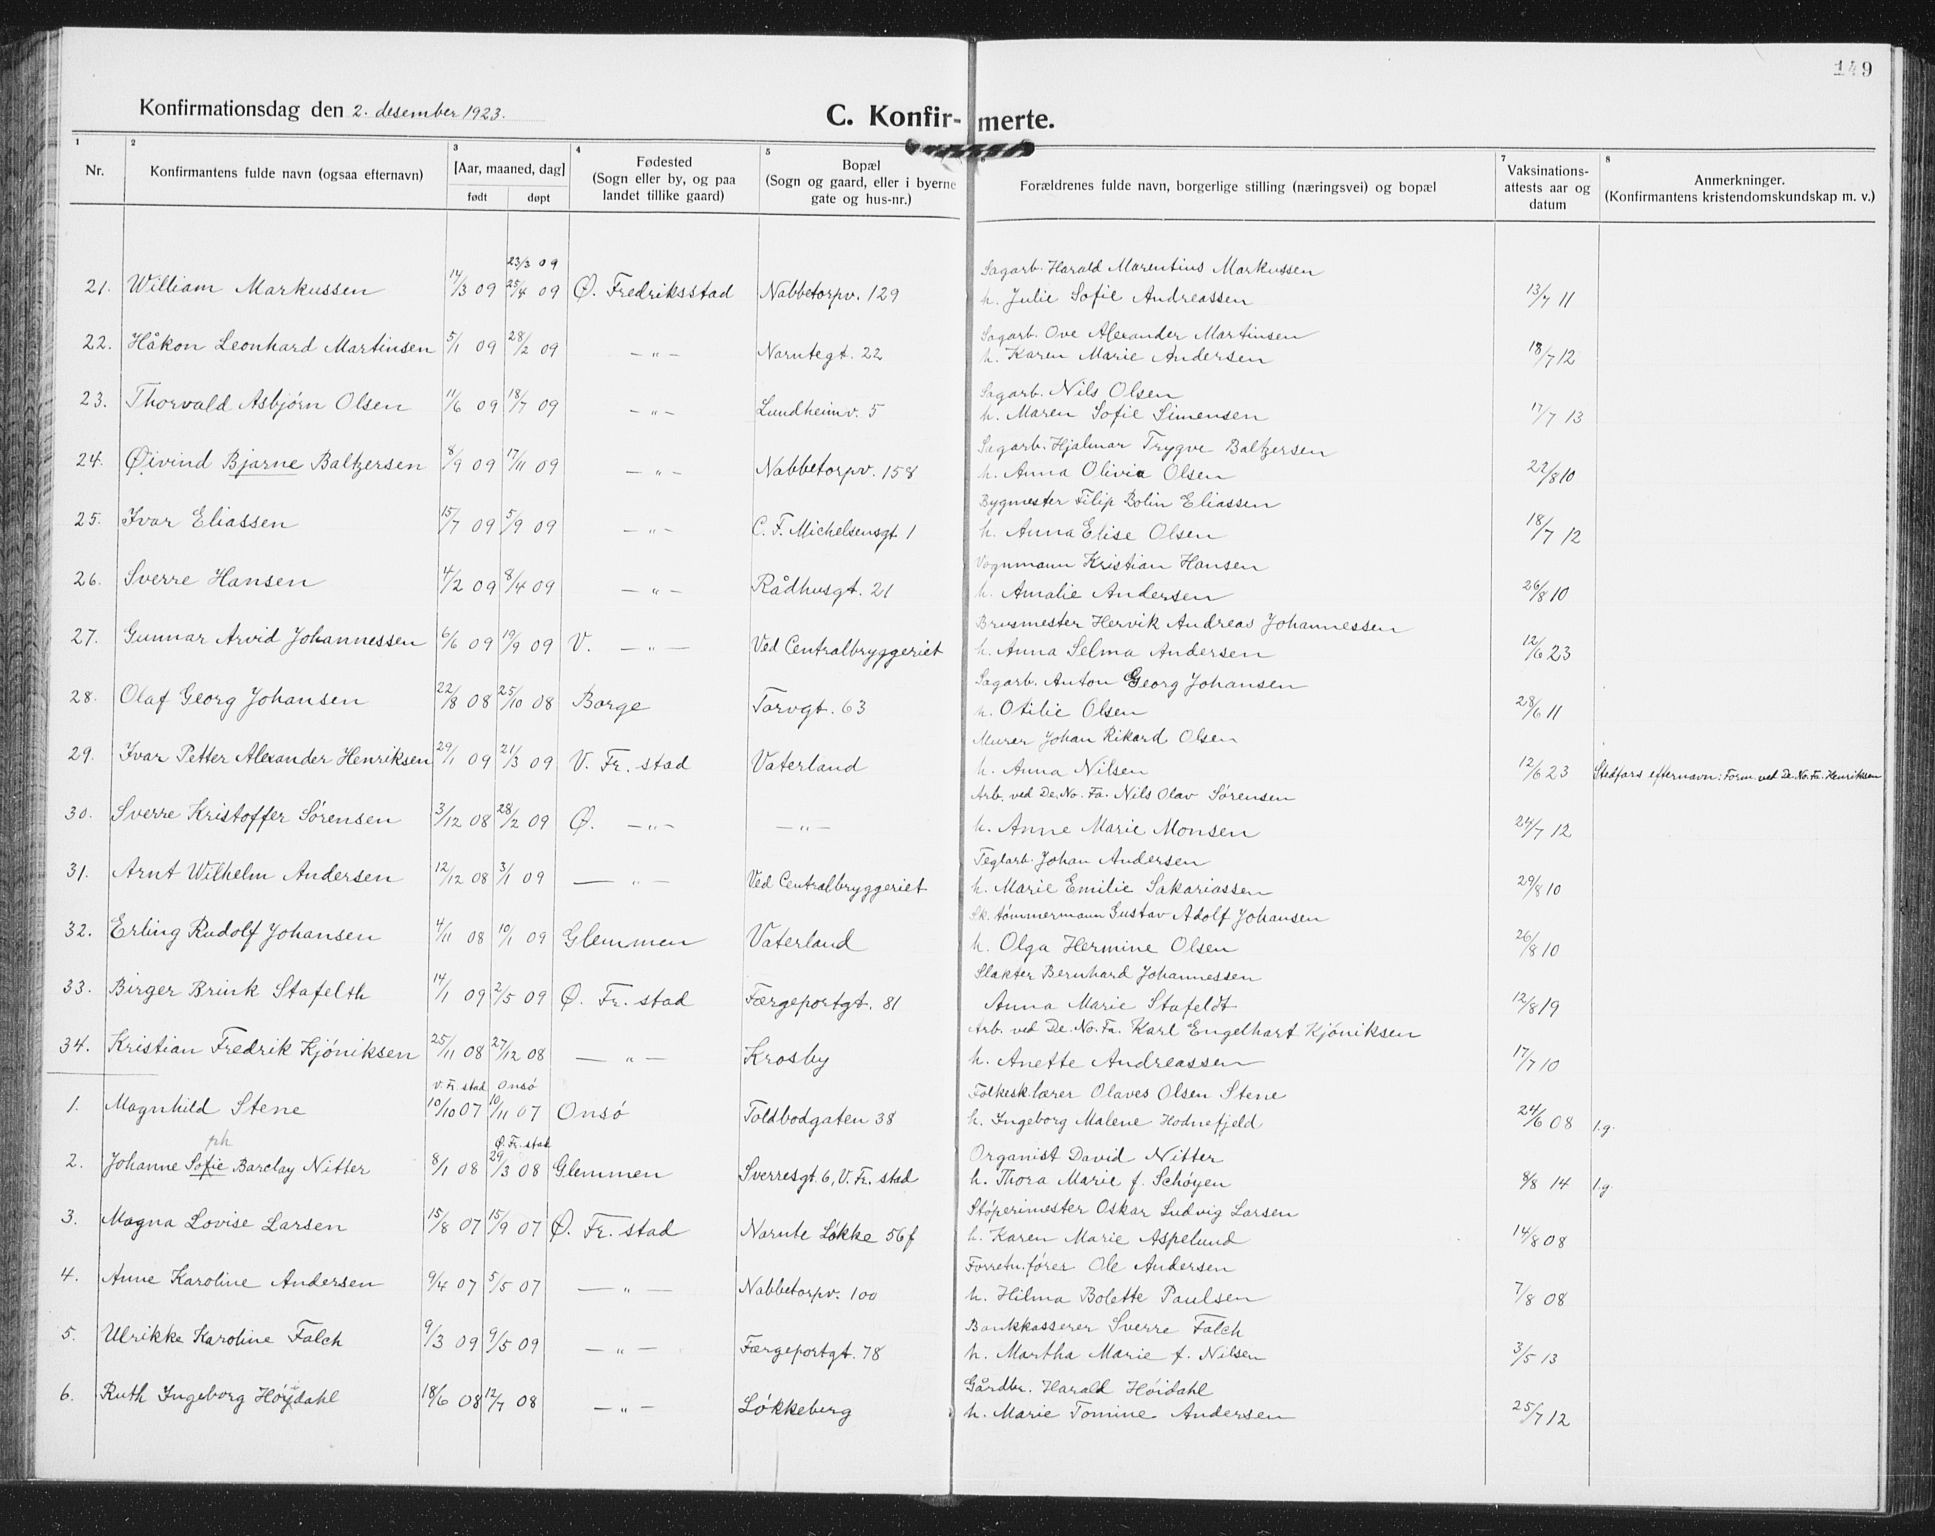 149
Konfirmationsdag den 2. desember 1923.
C. Konfir- merte.
1 2 3 4 5 7 8
Nr. Konfirmantens fulde navn (ogsaa efternavn) [Aar, maaned, dag] født døpt Fødested (Sogn eller by, og paa landet tillike gaard) Bopæl (Sogn og gaard, eller i byerne gate og hus-nr.) Forældrenes fulde navn, borgerlige stilling (næringsvei) og bopæl Vaksinations-attests aar og datum Anmerkninger. (Konfirmantens kristendomskundskap m. v.)
23/3 09 Sagarb. Harald Marentius Markussen
21. William Markussen 14/3 09 25/4 09 Ø. Fredriksstad Nabbetorpv. 129 h. Julie Sofie Andreassen 13/7 11
Sagarb. Ove Alexander Martinsen
22. Håkon Leonhard Martinsen 5/1 09 28/2 09 — „ — Narntegt. 22 h. Karen Marie Andersen 18/7 12
Sagarb. Nils Olsen
23. Thorvald Asbjørn Olsen 11/6 09 18/7 09 — „ — Lundheimv. 5 h. Maren Sofie Simensen 17/7 13
Sagarb. Hjalmar Trygve Baltzersen
24. Øivind Bjarne Baltzersen 8/9 09 17/11 09 — „ — Nabbetorpv. 158 h. Anna Olivia Olsen 22/8 10
Bygmester Filip Bolin Eliassen
25. Ivar Eliassen 15/7 09 5/9 09 — „ — C. F. Michelsensgt. 1 h. Anna Elise Olsen 18/7 12
Vognmann Kristian Hansen
26. Sverre Hansen 4/2 09 8/4 09 — „ — Rådhusgt. 21 h. Amalie Andersen 26/8 10
Brusmester Hervik Andreas Johannessen
27. Gunnar Arvid Johannessen 6/6 09 19/9 09 V. — „ — Ved Centralbryggeriet h. Anna Selma Andersen 12/6 23
Sagarb. Anton Georg Johansen
28. Olaf Georg Johansen 22/8 08 25/10 08 Borge Torvgt. 63 h. Otilie Olsen 28/6 11
Murer Johan Rikard Olsen
29. Ivar Petter Alexander Henriksen 29/1 09 21/3 09 V. Fr. stad Vaterland h. Anna Nilsen 12/6 23 Stedfars efternavn: Form. ved De. No. Fa. Henriksen
Arb. ved De. No. Fa. Nils Olav Sørensen
30. Sverre Kristoffer Sørensen 3/12 08 28/2 09 Ø. — „ — — „ — h. Anne Marie Monsen 24/7 12
Teglarb. Johan Andersen
31. Arnt Wilhelm Andersen 12/12 08 3/1 09 — „ — Ved Centralbryggeriet h. Marie Emilie Sakariassen 29/8 10
Sk. tømmermann Gustav Adolf Johansen
32. Erling Rudolf Johansen 4/11 08 10/1 09 Glemmen Vaterland h. Olga Hermine Olsen 26/8 10
Slakter Bernhard Johannessen
33. Birger Brink Stafelth 14/1 09 2/5 09 Ø. Fr. stad Færgeportgt. 81 Anna Marie Stafeldt 12/8 19
Arb. ved De. No. Fa. Karl Engelhart Kjøniksen
34. Kristian Fredrik Kjøniksen 25/11 08 27/12 08 — „ — Krosby h. Anette Andreassen 17/7 10
V. Fr. stad Onsø Folkesk.lærer Olaves Olsen Stene
1. Magnhild Stene 10/10 07 10/11 07 Onsø Toldbodgaten 38 h. Ingeborg Malene Hodnefjeld 24/6 08 1. g.
ph Ø. Fr. stad Organist David Nitter
2. Johanne Sofie Barclay Nitter 8/1 08 29/3 08 Glemmen Sverresgt. 6, V. Fr. stad h. Thora Marie f. Schøyen 8/8 14 1. g.
Støperimester Oskar Ludvig Larsen
3. Magna Lovise Larsen 15/8 07 15/9 07 Ø. Fr. stad Narnte Løkke 56f h. Karen Marie Aspelund 14/8 08
Forretn.fører Ole Andersen
4. Anne Karoline Andersen 9/4 07 5/5 07 — „ — Nabbetorpv. 100 h. Hilma Bolette Paulsen 7/8 08
Bankkasserer Sverre Falch
5. Ulrikke Karoline Falch 9/3 09 9/5 09 — „ — Færgeportgt. 78 h. Martha Marie f. Nilsen 3/5 13
Gårdbr. Harald Høidahl
6. Ruth Ingeborg Høydahl 18/6 08 12/7 08 — „ — Løkkeberg h. Marie Tomine Andersen 25/7 12